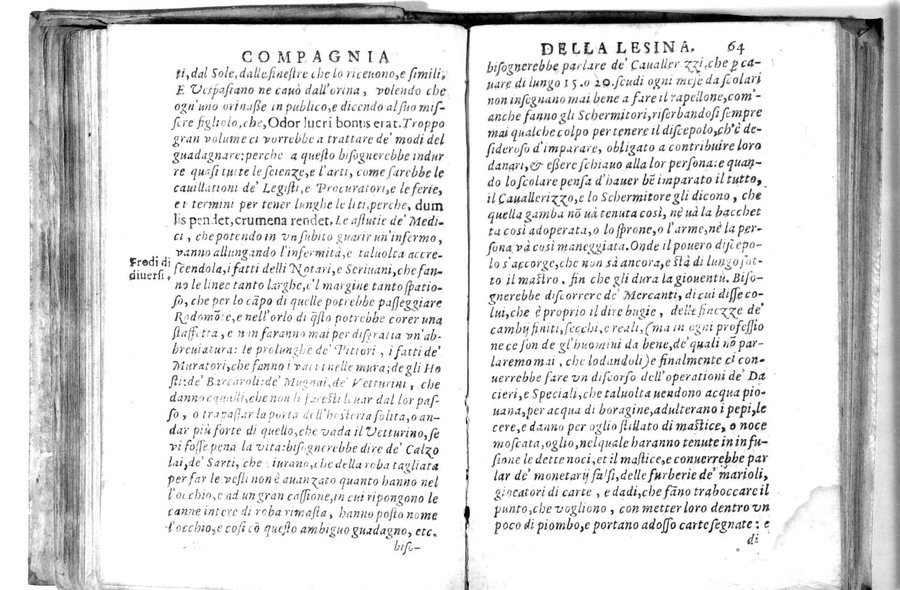 COMPAGNIA
ti, dal Sole, dalle finestre che lo riceuono, e simili.
E Vespasiano ne cauò dall'orina, volendo che
ogn'uno orinasse in publico, e dicendo al suo mis-
sere figliolo, che, Odor lucri bonus erat. Troppo
gran volume ci vorrebbe a trattare de' modi del
guadagnare: perche a questo bisognerebbe indur
re quasi tutte le scienze, e l'arti, come sarebbe le
cauillationi de' Legisti, e Procuratori, e le ferie,
et termini per tener lunghe le liti, perche, dum
lis pendet, crumena rendet. Le astutie de' Medi-
ci, che potendo in vn subito guarir un'infermo,
vanno allungando l'infermità, e taluolta accre-
Frodi di
diuersi.
scendola, i fatti delli Notari, e Scriuani, che fan-
no le linee tanto larghe, e'l margine tanto spatio-
so, che per lo cãpo di quelle potrebbe passeggiare
Rodomõte, e nell'orlo di q̃sto potrebbe correr una
staffetta, e non faranno mai per disgratia vn'ab-
breuiatura: le prolunghe de' Pittori, i fatti de'
Muratori, che fanno i vacui nelle mura; de gli Ho
sti: de' Barcaroli: de' Mugnai, de' Vetturini, che
danno caualli, che non li faresti leuar dal lor pas-
so, o trapassar la porta dell'hosteria solita, o an-
dar più forte di quello, che vada il Vetturino, se
vi fosse pena la vita: bisognerebbe dire de' Calzo
lai, de' Sarti, che giurano, che della roba tagliata
per far le vesti non è auanzato quanto hanno nel
l'occhio, e ad un gran cassone, in cui ripongono le
canne intere di roba rimasta, hanno posto nome
l'occhio, e cosi cõ questo ambiguo guadagno, etc.
biso-
DELLA LESINA. 64
bisognerebbe parlare de' Cauallerizzi, che p ca-
uare di lungo 15. o 20. scudi ogni mese da scolari
non insegnano mai bene a fare il rapellone, com'-
anche fanno gli Schermitori, riserbandosi sempre
mai qualche colpo per tenere il discepolo, ch'è de-
sideroso d'imparare, obligato a contribuire loro
danari, & essere schiauo alla lor persona: e quan-
do lo scolare pensa d'hauer bẽ imparato il tutto,
il Cauallerizzo, e lo Schermitore gli dicono, che
quella gamba nõ uà tenuta così, nè uà la bacchet
ta così adoperata, o lo sprone, o l'arme, nè la per
sona và così maneggiata. Onde il pouero discepo-
lo s'accorge, che non sà ancora, e stà di lungo sot-
to il mastro, fin che gli dura la giouentù. Biso-
gnerebbe discorrere de' Mercanti, di cui disse co-
lui, che è proprio il dire bugie, delle finezze de'
cambij finiti, secchi, e reali, (ma in ogni professio
ne ce son de gl'huomini da bene, de' quali nõ par-
laremo mai, che lodandoli) e finalmente ci con-
uerrebbe fare vn discorso dell'operationi de' Da
cieri, e Speciali, che taluolta uendono acqua pio-
uana, per acqua di boragine, adulterano i pepi, le
cere, e danno per oglio stillato di mastice, o noce
moscata, oglio, nel quale haranno tenute in infu-
sione le dette noci, et il mastice, e conuerrebbe par
lar de' monetarij falsi, delle furberie de' marioli,
giocatori di carte, e dadi, che fãno traboccare il
punto, che vogliono, con metter loro dentro vn
poco di piombo, e portano adosso carte segnate: e
di